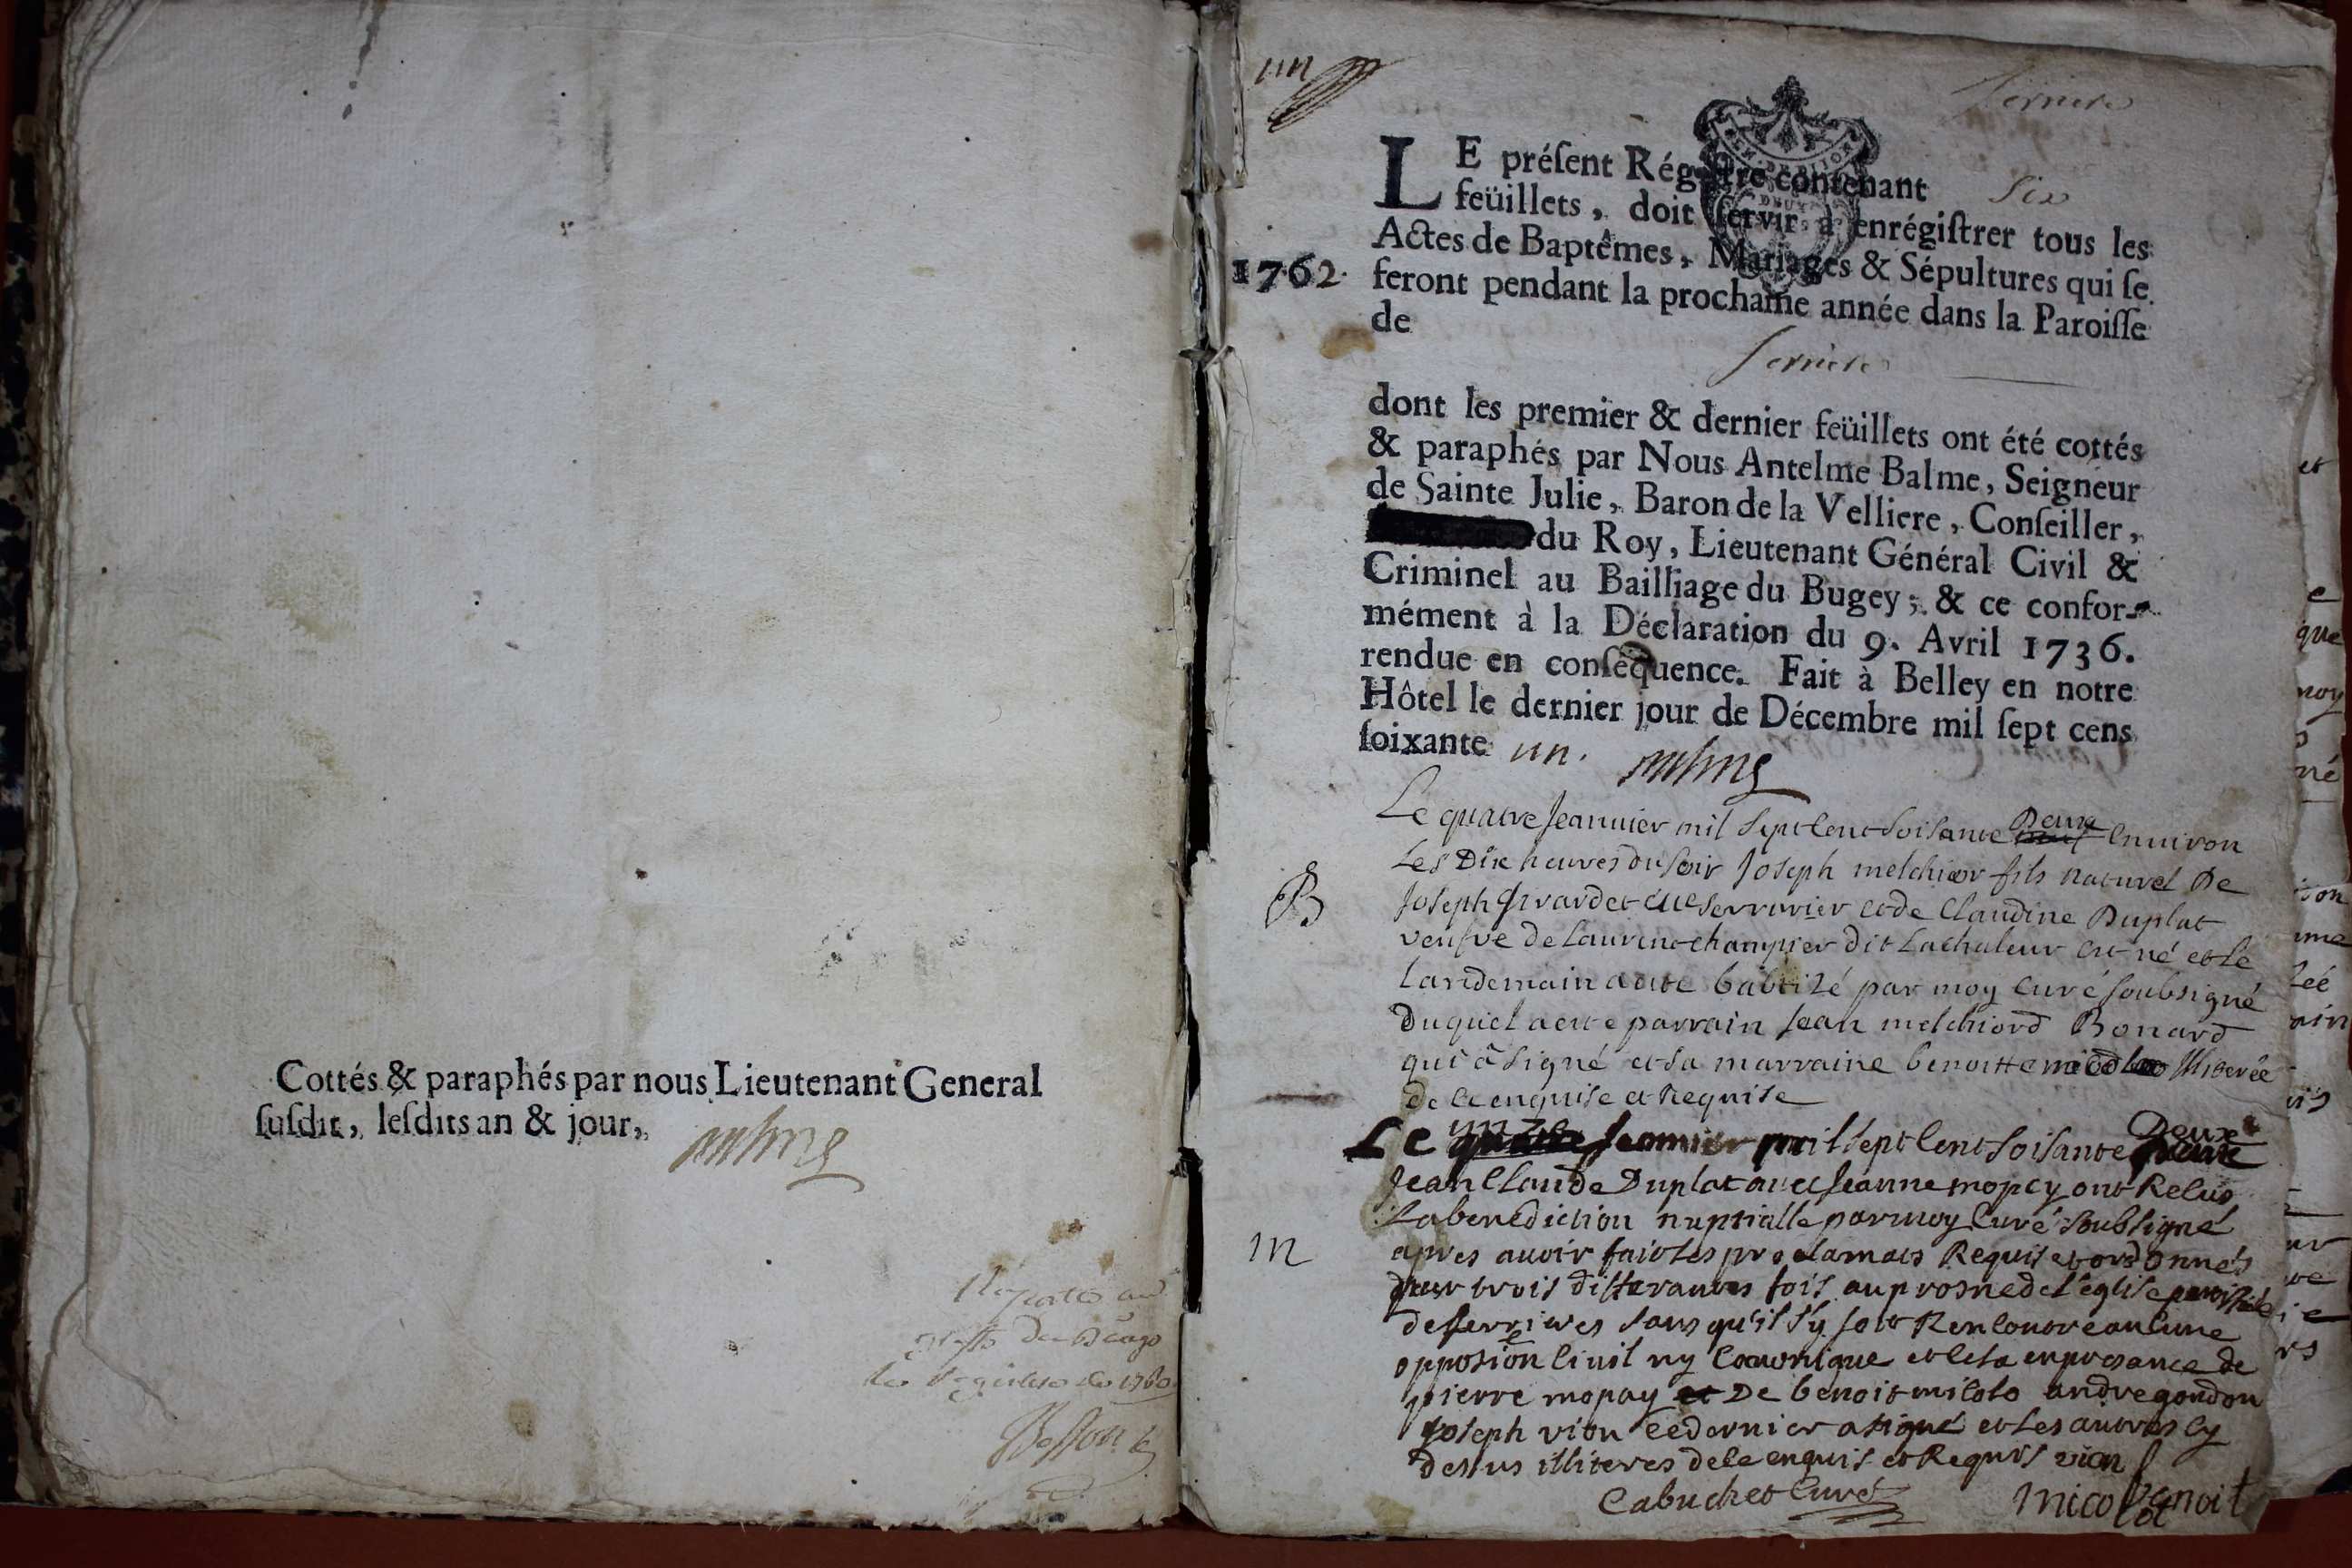 Cottés & paraphés par nous Lieutenant General
ſuſdit, leſdits an & jour,
greffe de
1760
un
Serriere
LE préſent Régiſtre contenant Six
feüillets, doit ſervir à enrégiſtrer tous les
Actes de Baptêmes, Mariages & Sépultures qui ſe
1762. feront pendant la prochaine année dans la Paroiſſe
de
Serriere
dont les premier & dernier feüillets ont été cottés
& paraphés par Nous Antelme Balme, Seigneur
de Sainte Julie, Baron de la Velliere, Conſeiller,
du Roy, Lieutenant Général Civil &
Criminel au Bailliage du Bugey; & ce confor-
mément à la Déclaration du 9. Avril 1736.
rendue en conſéquence. Fait à Belley en notre
Hôtel le dernier jour de Décembre mil ſept cens
ſoixante un.
Le quatre Jeanuier mil sept cent soisante Deux enuiron
Les Dix heures du soir Joseph melchior fils naturel De
B
Joseph Girardet serrurier et de Claudine Duplat
veufve de Laurent champier dit Lachaleur est né et le
Landemain a été babtizé par moy Curé soubsigné
Duquel a esté parrain Jean melchiord Bonard
qui â signé et sa marraine benoitte illiterée
de ce enquise et Requise
Le unze Jeanuier mil sept Cent soisante Deux
Jean Claude Duplat auec Jeanne mopey ont Relus
La benediction nuptialle par moy Curé soubsigné
m
apres auoir fait les proclamats Requis et ordonnés
par trois differantes fois au prosne de L'église
de serrieres sans qu'il s'y soit Rencontré aucune
opposion Ciuil ny Canonique et ce en presance de
pierre mopay et De benoit andre gondon
Joseph vion ce dernier a signé et Les autres cy
dessus illiteres de ce enquis et Requis vion
Cabuchet Curé
benoit